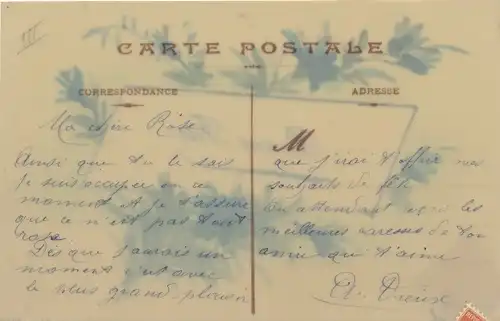 III
CARTE POSTALE
CORRESPONDANCE
ADRESSE
Ma chère Rose.
Ainsi que tu le sais
je suis occupée en ce
moment et je t'assure
que ce n'est pas tout
rose.
Dès que j'aurais un
moment c'est avec
le plus grand plaisir
M
que j'irai t'offrir mes
souhaits de fête.
En attendant reçois les
meilleures caresses de ton
amie qui t'aime
A.